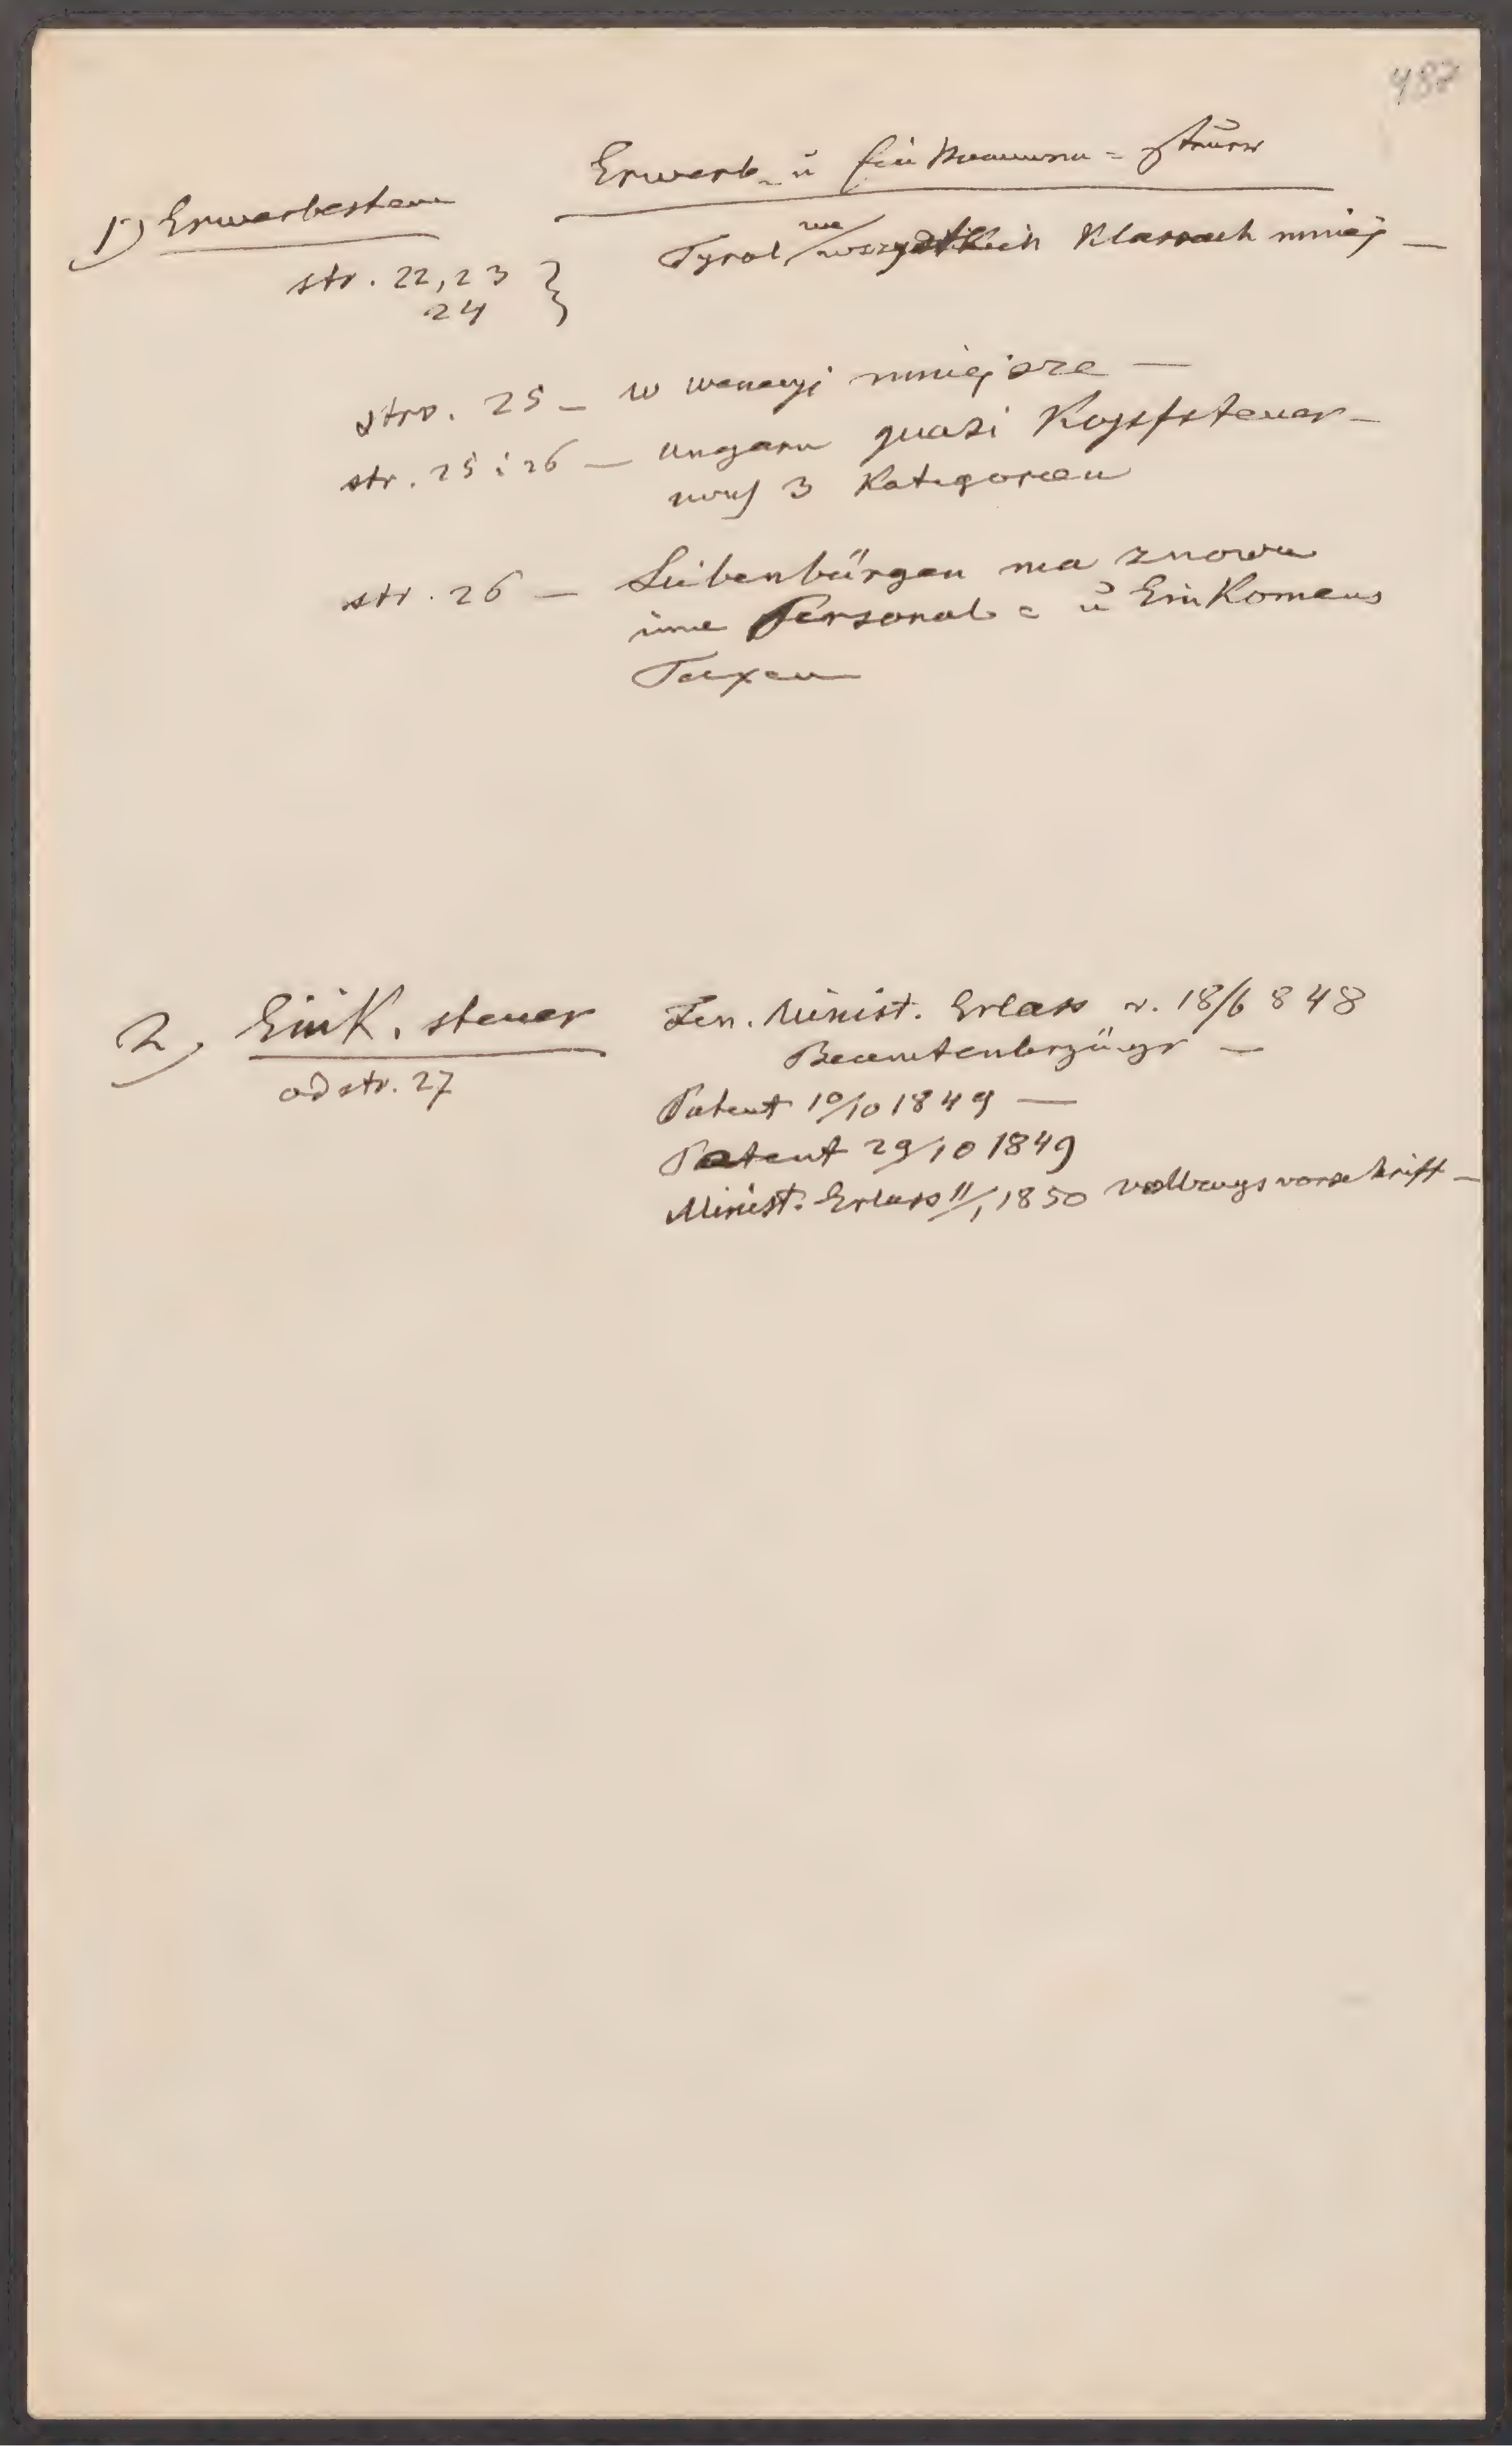 487
Erwerb- ŭ Einkommen-Steuer
1) Erwerbesteuer
Tyrol we wszystkich Klassach mniej —
str. 22, 23
24
str. 25 — w Wenecyi mniejsze —
str. 25 i 26 — Ungarn quasi Kopfsteuer —
nach 3 Kategorien
str. 26 — Siebenbürgen ma znowu
inne Personal- ŭ Einkomens
Taxen
2) Eink. steuer
Fin. Minist. Erlass v. 18/6 848
Beamtenbezüge —
od str. 27
Patent 10/10 1849 —
Patent 29/10 1849
Minist. Erlass 11/1 1850 Vollzugsvorschrift —